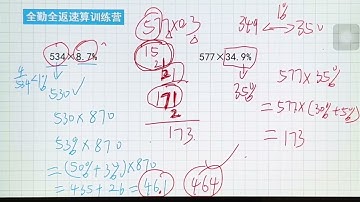 全勤全返速算训练营
534×8.7%
4/534<1%
530✓
530×870
53%×870
=(50%+3%)×870
=435+26=461
464
577×0.3
15
21
21
171
2
173
577×34.9%
35%
349 1% 350
577×35%
=577×(30%+5%)
=173